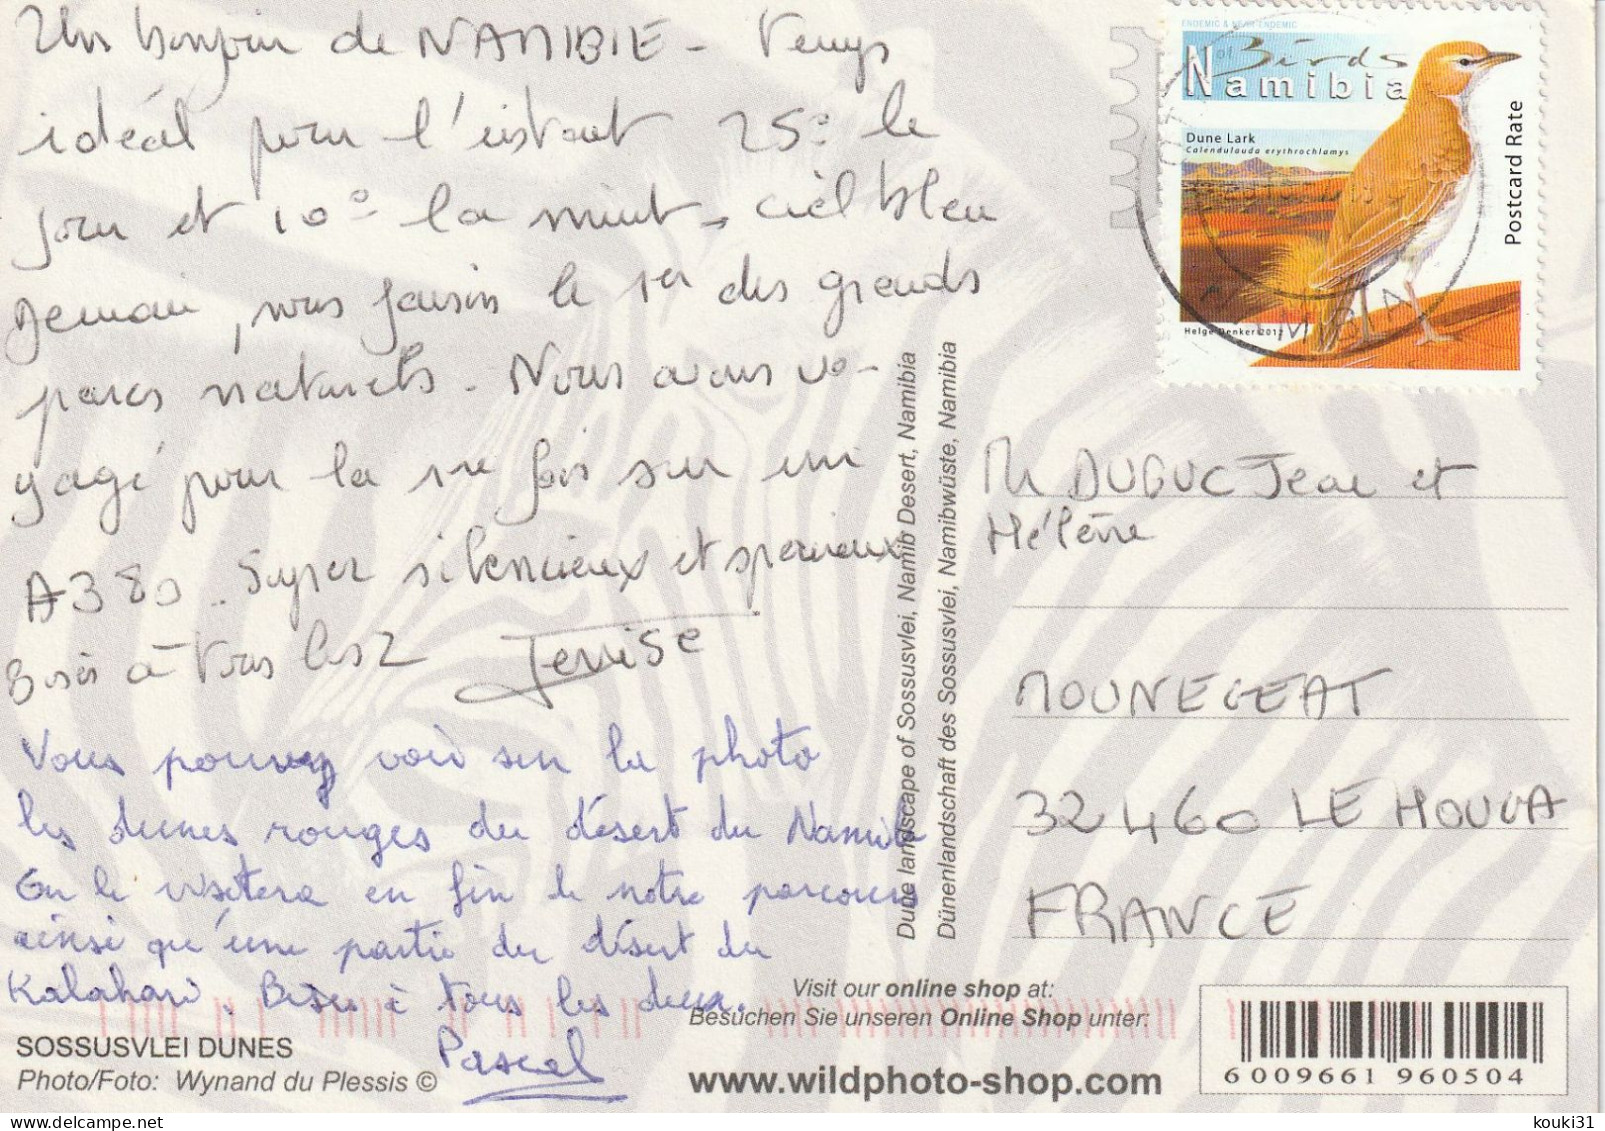 Un bonjour de NAMIBIE - Temps
idéal pour l'instant 25° le
jour et 10° la nuit, ciel bleu
Demain, nous faisons le 1er des grands
parcs naturels. Nous avons vo-
yagé pour la 1re fois sur un
A380. Super silencieux et spacieux
Bises à tous les 2 Denise
Vous pouvez voir sur la photo
les dunes rouges du désert du Namib
On le visitera en fin de notre parcours
ainsi qu'une partie du désert du
Kalahari. Bises à tous les deux.
Pascal
SOSSUSVLEI DUNES
Photo/Foto: Wynand du Plessis ©
Dune landscape of Sossusvlei, Namib Desert, Namibia
Dünenlandschaft des Sossusvlei, Namibwüste, Namibia
ENDEMIC & NEAR ENDEMIC
Birds
of
Namibia
Dune Lark
Calendulauda erythrochlamys
Postcard Rate
Helge Denker 2012
NAMIBIA
Mr DUGUC Jean et
Hélène
32460 LE HOUGA
FRANCE
Visit our online shop at:
Besuchen Sie unseren Online Shop unter:
www.wildphoto-shop.com
6009661 960504
kouki31